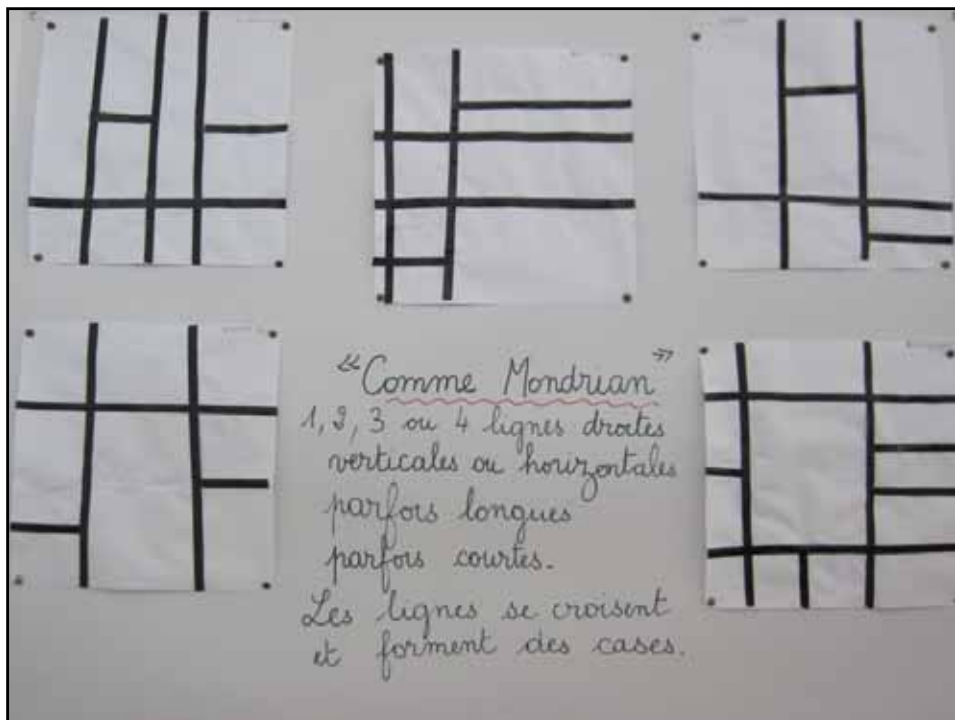 "Comme Mondrian"
1, 2, 3 ou 4 lignes droites
verticales ou horizontales
parfois longues
parfois courtes.
Les lignes se croisent
et forment des cases.